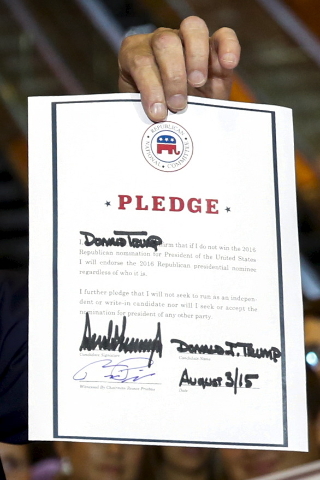 REPUBLICAN NATIONAL COMMITTEE
★ PLEDGE ★
I, DONALD TRUMP affirm that if I do not win the 2016
Republican nomination for President of the United States
I will endorse the 2016 Republican presidential nominee
regardless of who it is.
I further pledge that I will not seek to run as an indepen-
dent or write-in candidate nor will I seek or accept the
nomination for president of any other party.
DONALD J. TRUMP
Candidate Signature
Candidate Name
AUGUST 3/15
Witnessed By Chairman Reince Priebus
Date